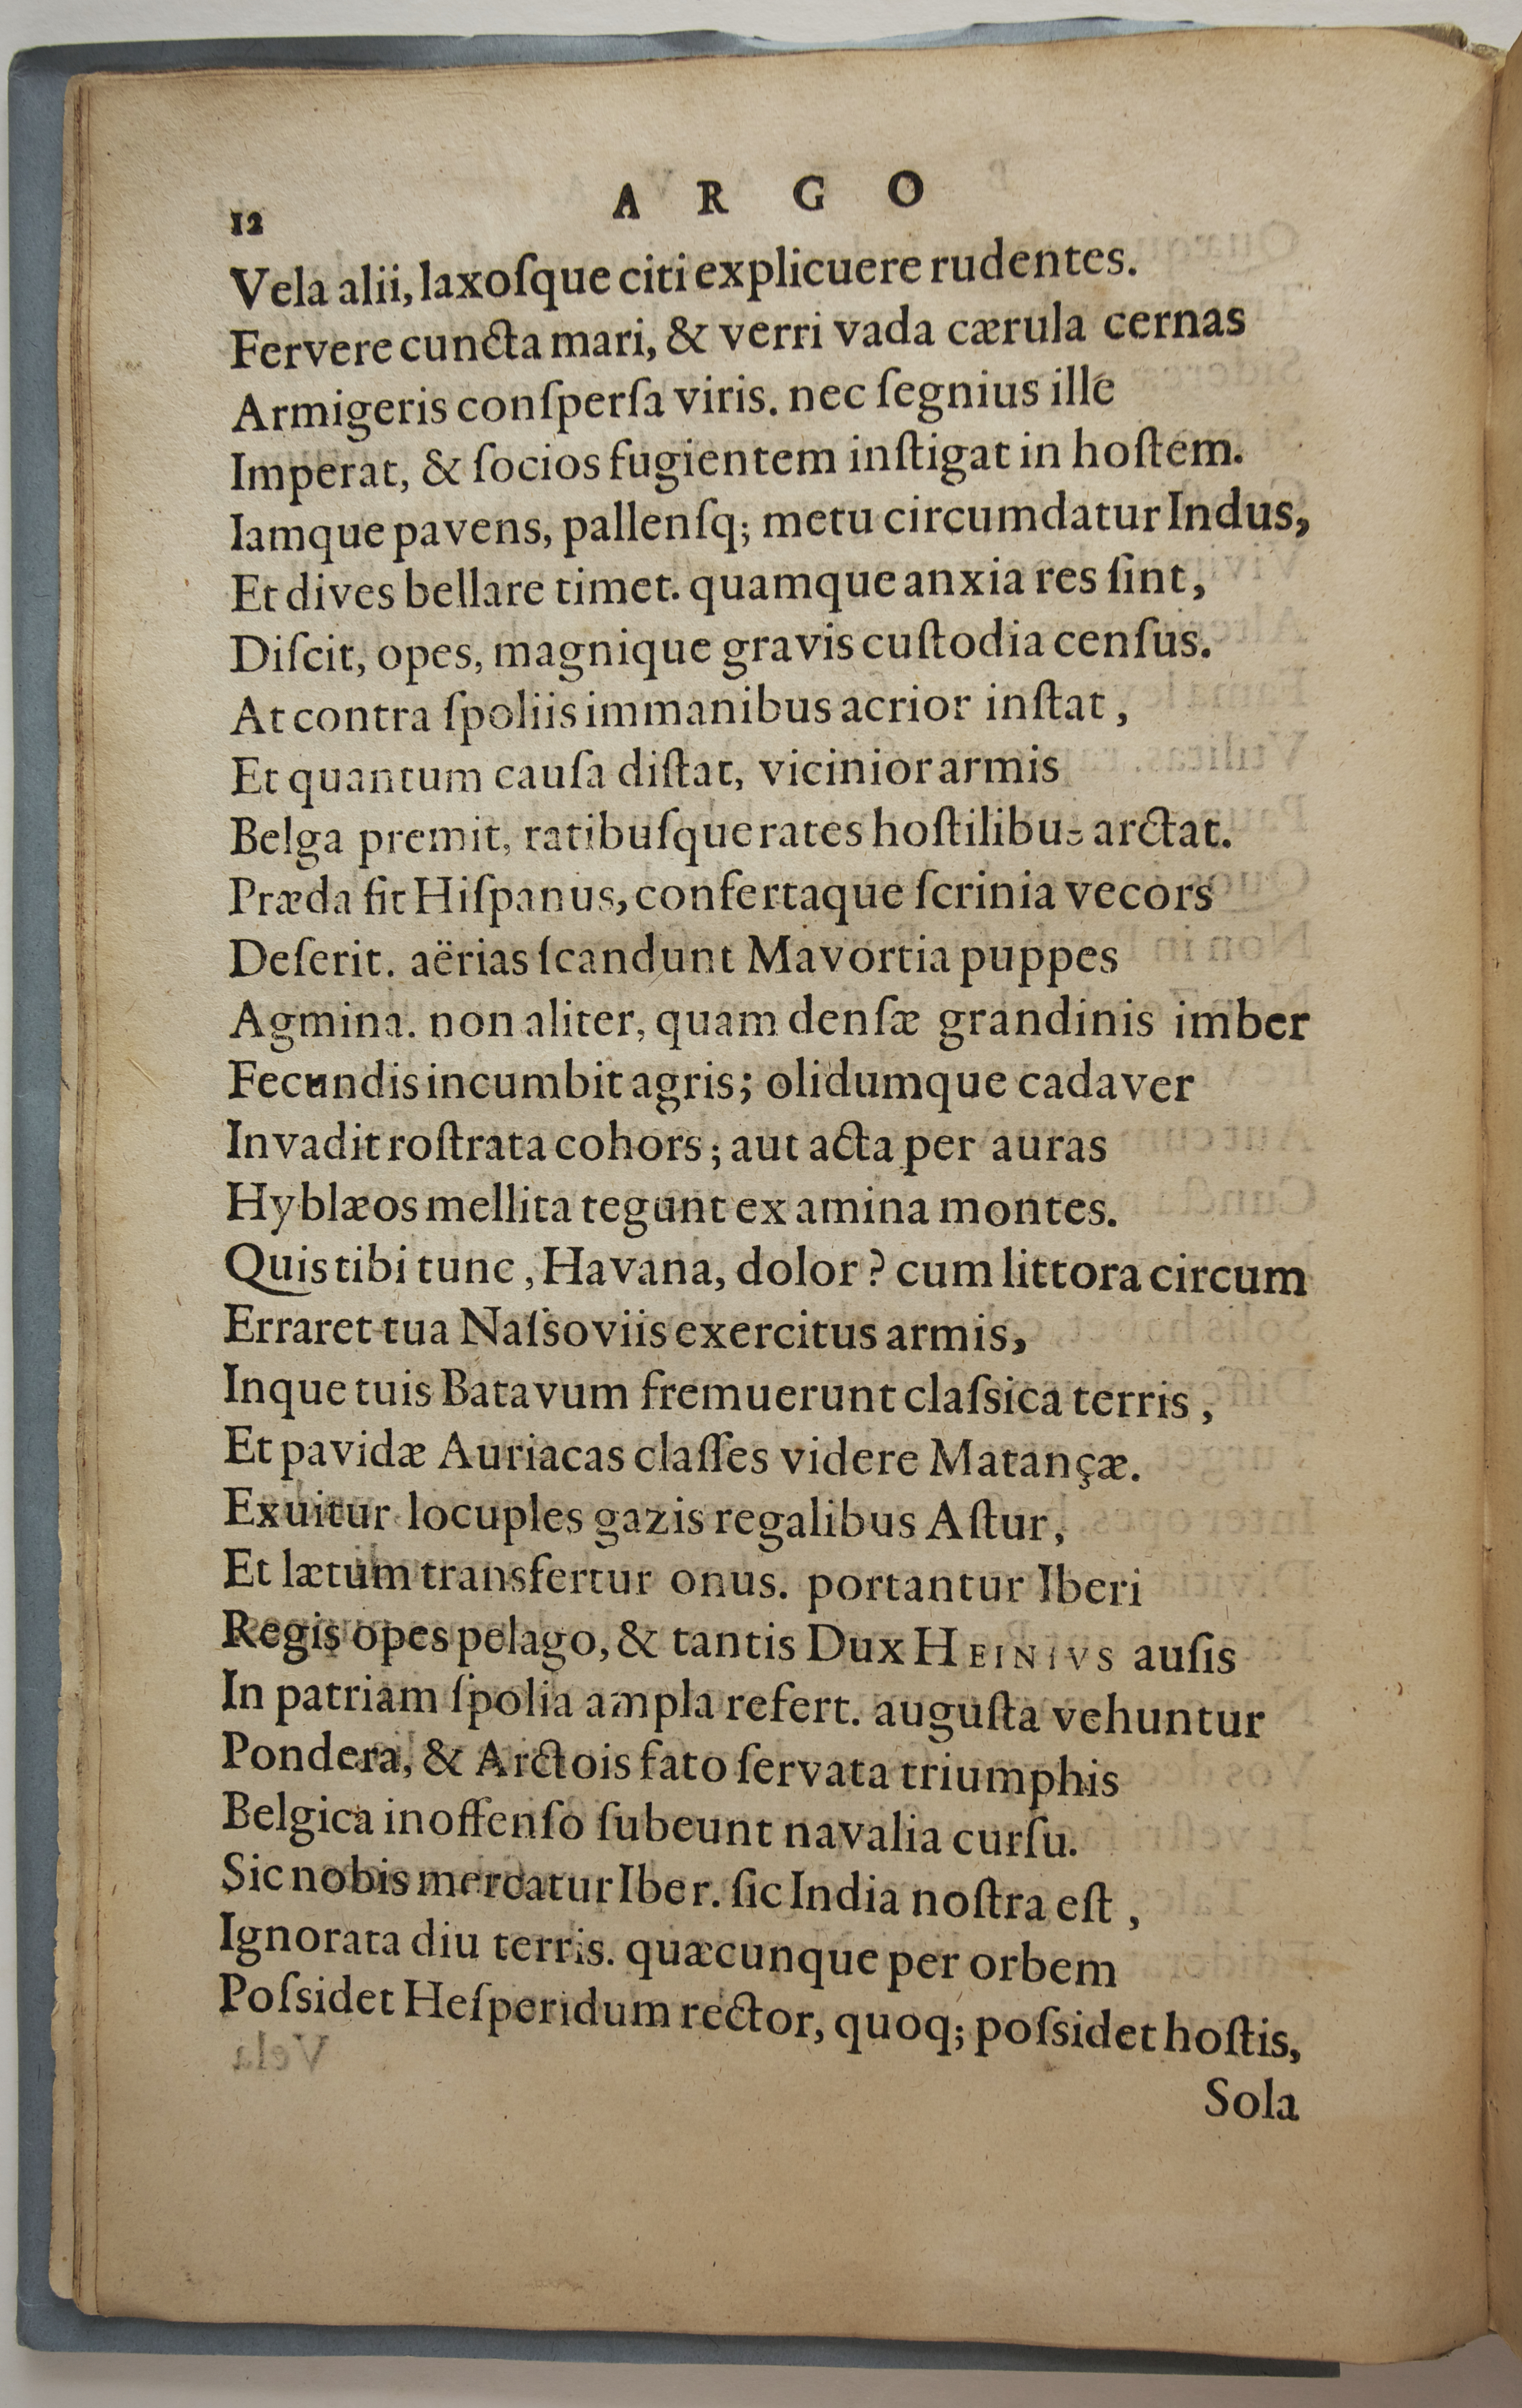 12 A R G O
Vela alii, laxoſque citi explicuere rudentes.
Fervere cuncta mari, & verri vada cærula cernas
Armigeris conſperſa viris. nec ſegnius ille
Imperat, & ſocios fugientem inſtigat in hoſtem.
Iamque pavens, pallenſq; metu circumdatur Indus,
Et dives bellare timet. quamque anxia res ſint,
Diſcit, opes, magnique gravis cuſtodia cenſus.
At contra ſpoliis immanibus acrior inſtat,
Et quantum cauſa diſtat, vicinior armis
Belga premit, ratibuſque rates hoſtilibus arctat.
Præda fit Hiſpanus, confertaque ſcrinia vecors
Deſerit. aërias ſcandunt Mavortia puppes
Agmina. non aliter, quam denſæ grandinis imber
Fecundis incumbit agris; olidumque cadaver
Invadit roſtrata cohors; aut acta per auras
Hyblæos mellita tegunt examina montes.
Quis tibi tunc, Havana, dolor? cum littora circum
Erraret tua Naſsoviis exercitus armis,
Inque tuis Batavum fremuerunt claſsica terris,
Et pavidæ Auriacas claſſes videre Matançæ.
Exuitur locuples gazis regalibus Aſtur,
Et lætum transfertur onus. portantur Iberi
Regis opes pelago, & tantis Dux HEINIVS auſis
In patriam ſpolia ampla refert. auguſta vehuntur
Pondera, & Arctois fato ſervata triumphis
Belgica inoffenſo ſubeunt navalia curſu.
Sic nobis mercatur Iber. ſic India noſtra eſt,
Ignorata diu terris. quæcunque per orbem
Poſsidet Heſperidum rector, quoq; poſsidet hoſtis,
Sola